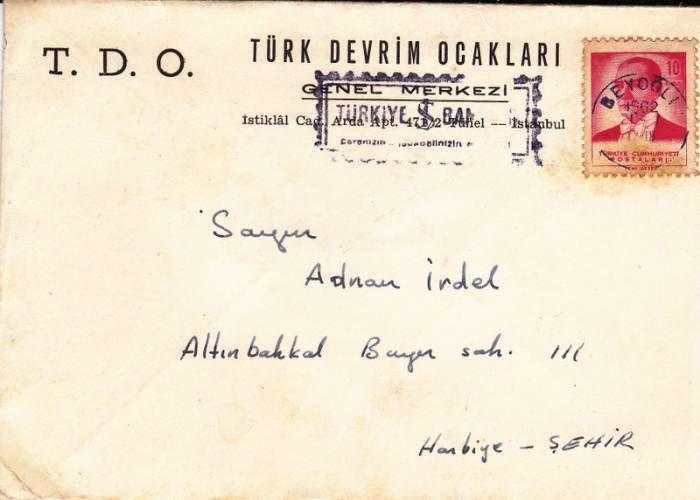 T. D. O.
TÜRK DEVRİM OCAKLARI
GENEL MERKEZİ
İstiklâl Cad. Arda Apt. 471/2 Tünel — İstanbul
TÜRKİYE İŞ BAN
10
BEYOĞLU
1962
TÜRKİYE CUMHURİYETİ
POSTALARI
Sayın
Adnan İrdel
Altınbakkal Bayır sok. 111
Harbiye - ŞEHİR